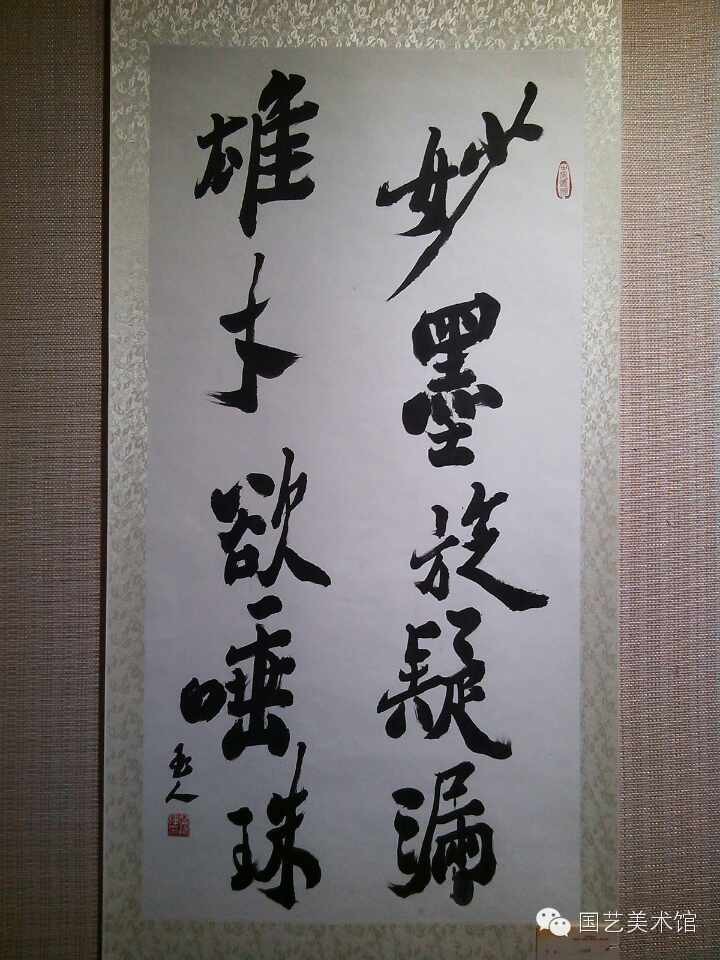 妙墨旋疑漏
雄才欲唾珠
国艺美术馆